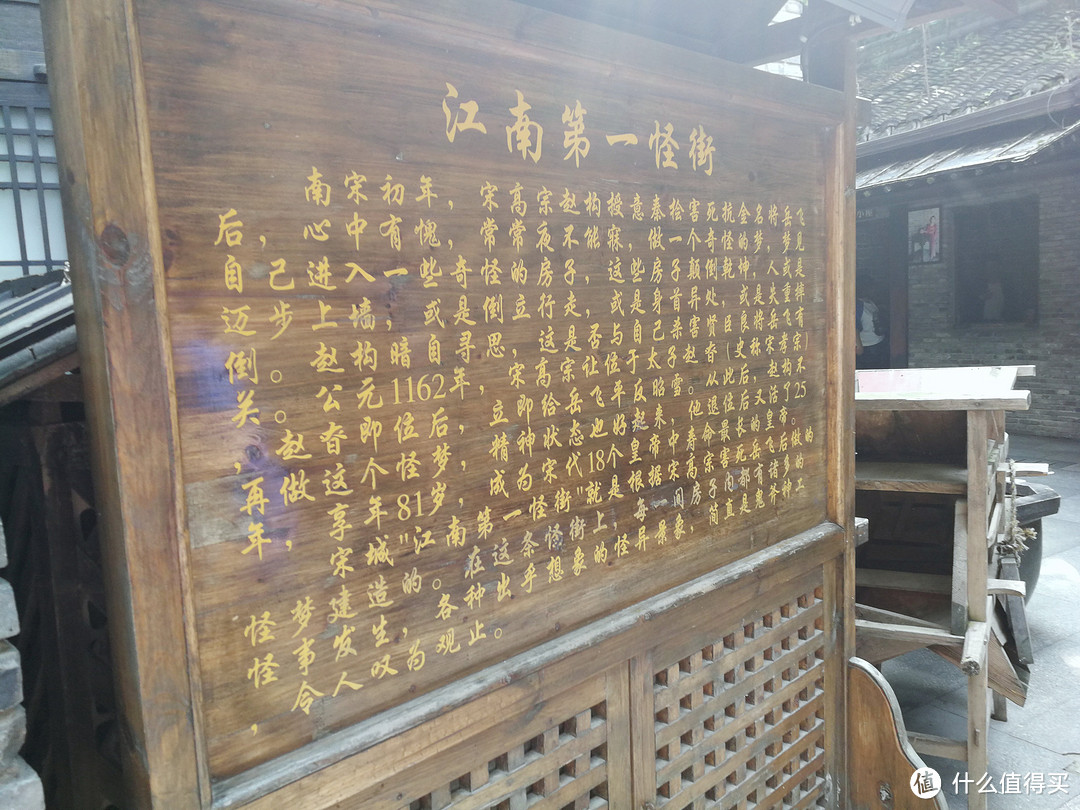 江南第一怪街
南宋初年，宋高宗赵构授意秦桧害死抗金名将岳飞
后，心中有愧，常常夜不能寐，做一个奇怪的梦，梦见
自己进入一些奇怪的房子，这些房子颠倒乾坤，人或是
迈步上墙，或是倒立行走，或是身首异处，或是失重摔
倒。赵构暗自寻思，这是否与自己杀害贤臣良将岳飞有
关。公元1162年，宋高宗让位于太子赵昚（史称宋孝宗）
，赵昚即位后，立即给岳飞平反昭雪。从此后，赵构不
再做这个怪梦，精神状态也好起来，他退位后又活了25
年，享年81岁，成为宋代18个皇帝中寿命最长的皇帝。
宋城"江南第一怪街"就是根据宋高宗害死岳飞后做的
怪梦建造的。在这条怪街上，每一间房子内都有诸多的
怪事发生，各种出乎想象的怪异景象，简直是鬼斧神工
，令人叹为观止。
值 什么值得买